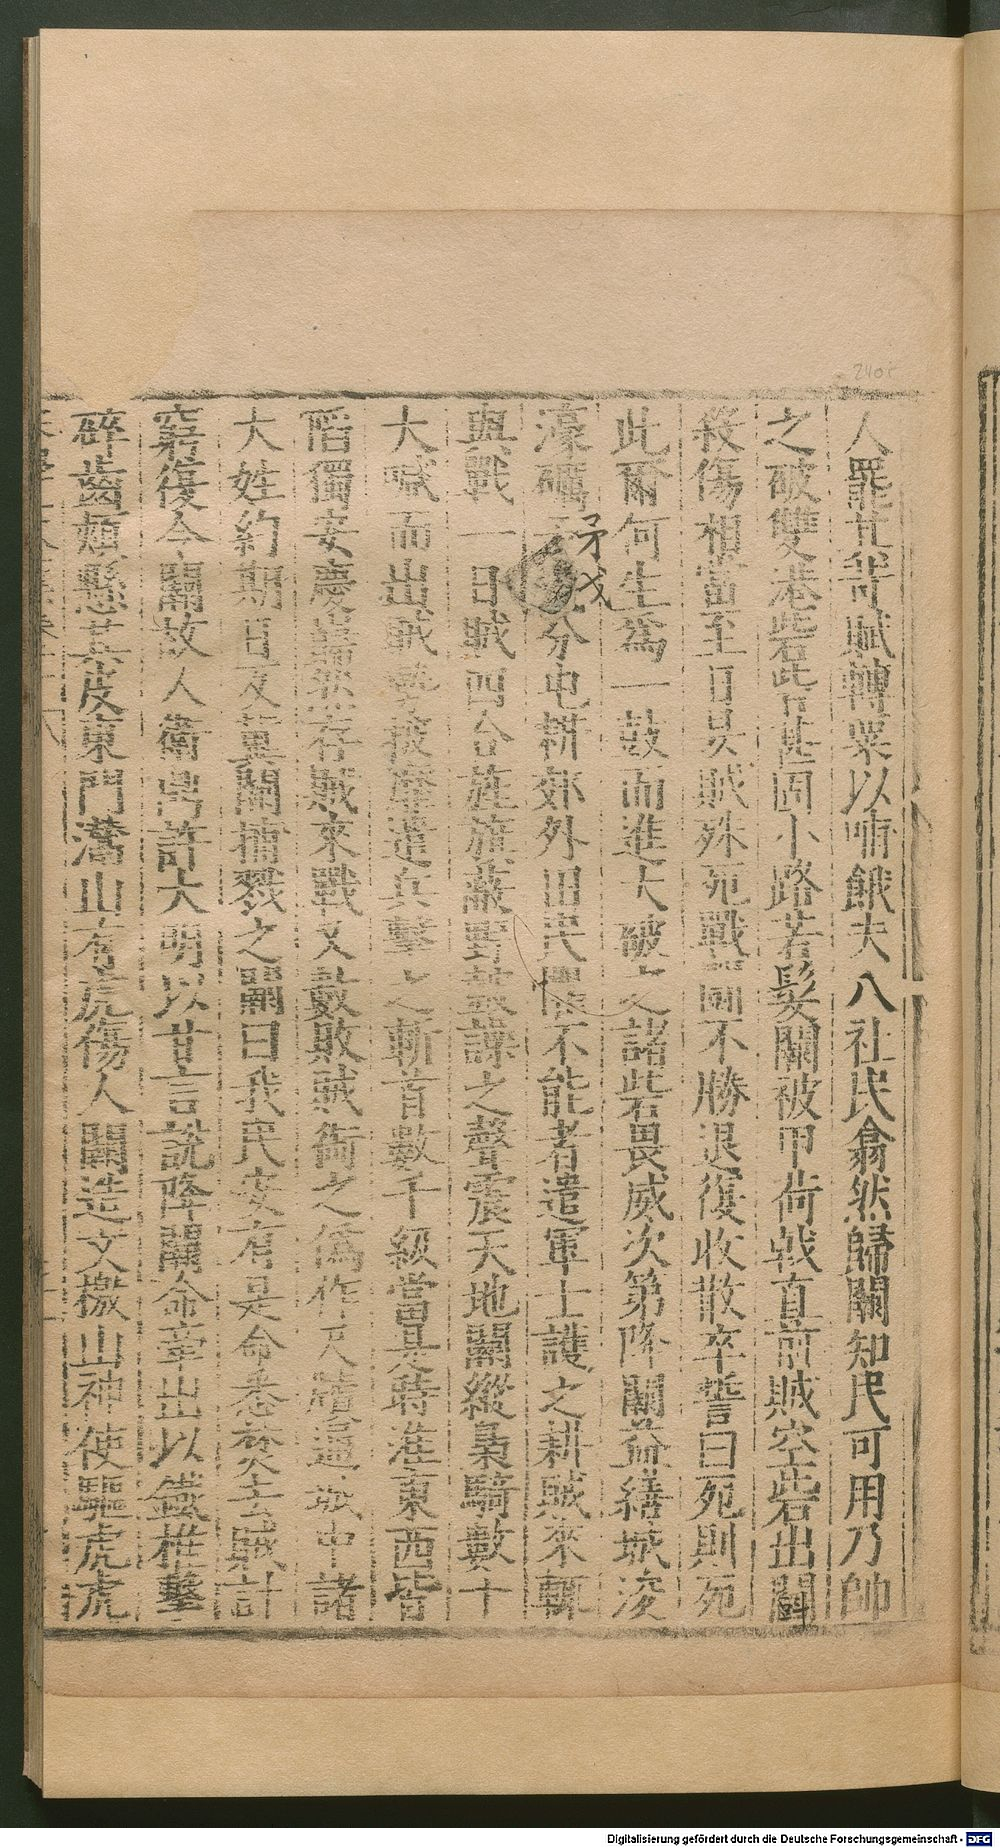 人罷丗苛賦轉粟以哺餓夫八社民翕然歸闕知民可用乃帥
之破雙港砦砦甚固小路若髪闕被甲荷戟直前賊空砦出鬭
殺傷相當至日昃賊殊死戰闕不勝退復收散卒誓曰死則死
此爾何生為一鼓而進大破之諸砦畏威次第降闕益繕城浚
濠礪矛戈分屯耕郊外田民不能者遣軍士護之耕賊來輒
與戰一日賊四合旌旗蔽野鼓譟之聲震天地闕縱梟騎數十
大喊而出賊勢披靡進兵擊之斬首數千級當是時淮東西皆
陷獨安慶巋然存賊來戰又數敗賊銜之偽作尺牘遍城中諸
大姓約期日反冀闕捕戮之闕曰我民安有是命悉焚去賊計
窮復令闕故人衛鼎許大明以甘言說降闕命牽出以鐵椎擊
碎齒頰懸其皮東門灊山有虎傷人闕造文檄山神使驅虎虎
矛戈
2401
Digitalisierung gefördert durch die Deutsche Forschungsgemeinschaft - DFG